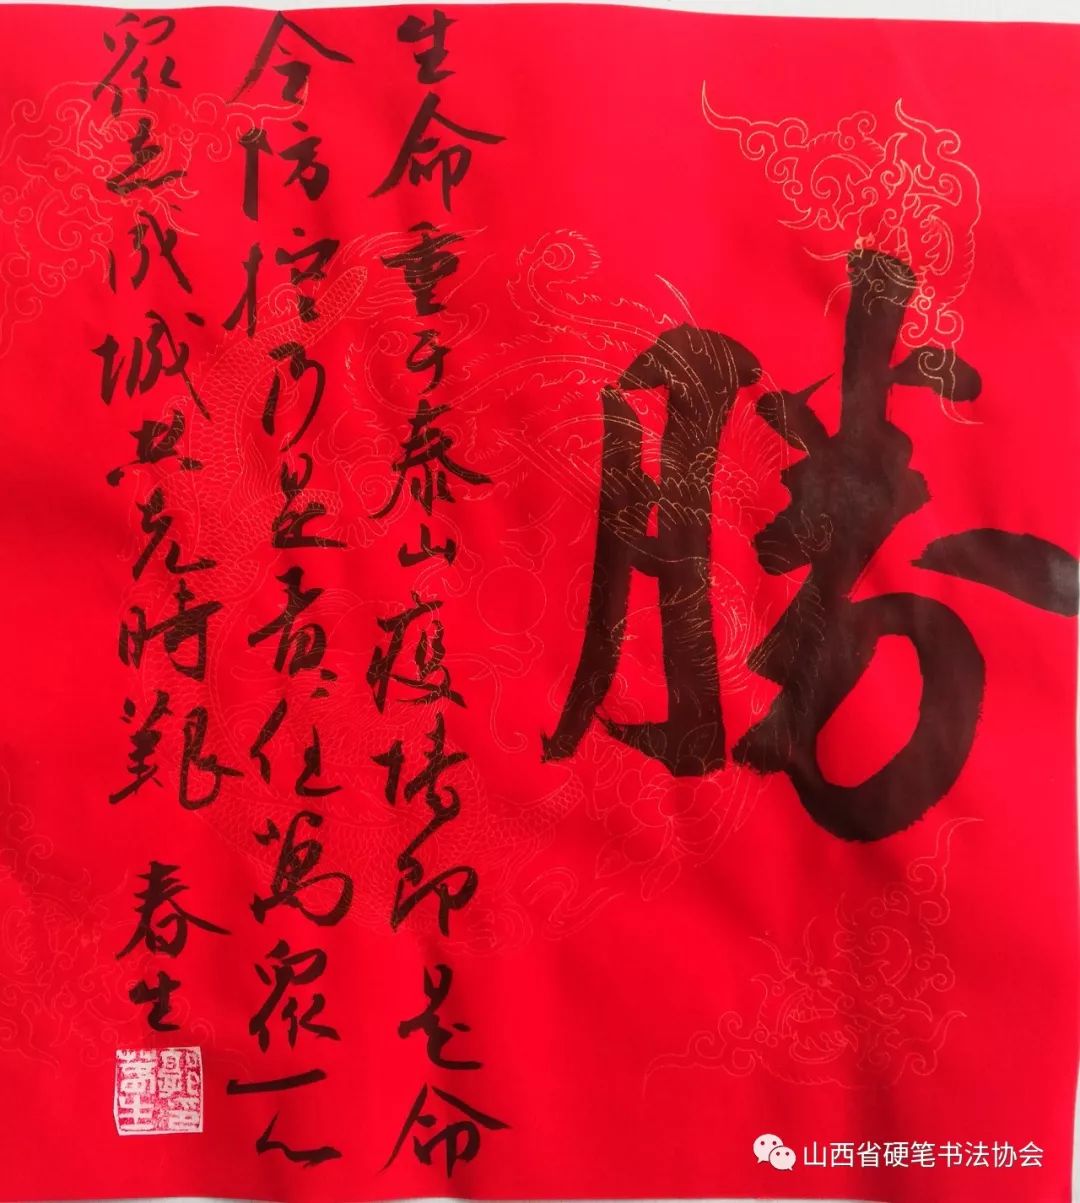 勝
生命重于泰山疫情即是命
令防控乃是責任萬眾一心
眾志成城共克時艱
春生
山西省硬笔书法协会